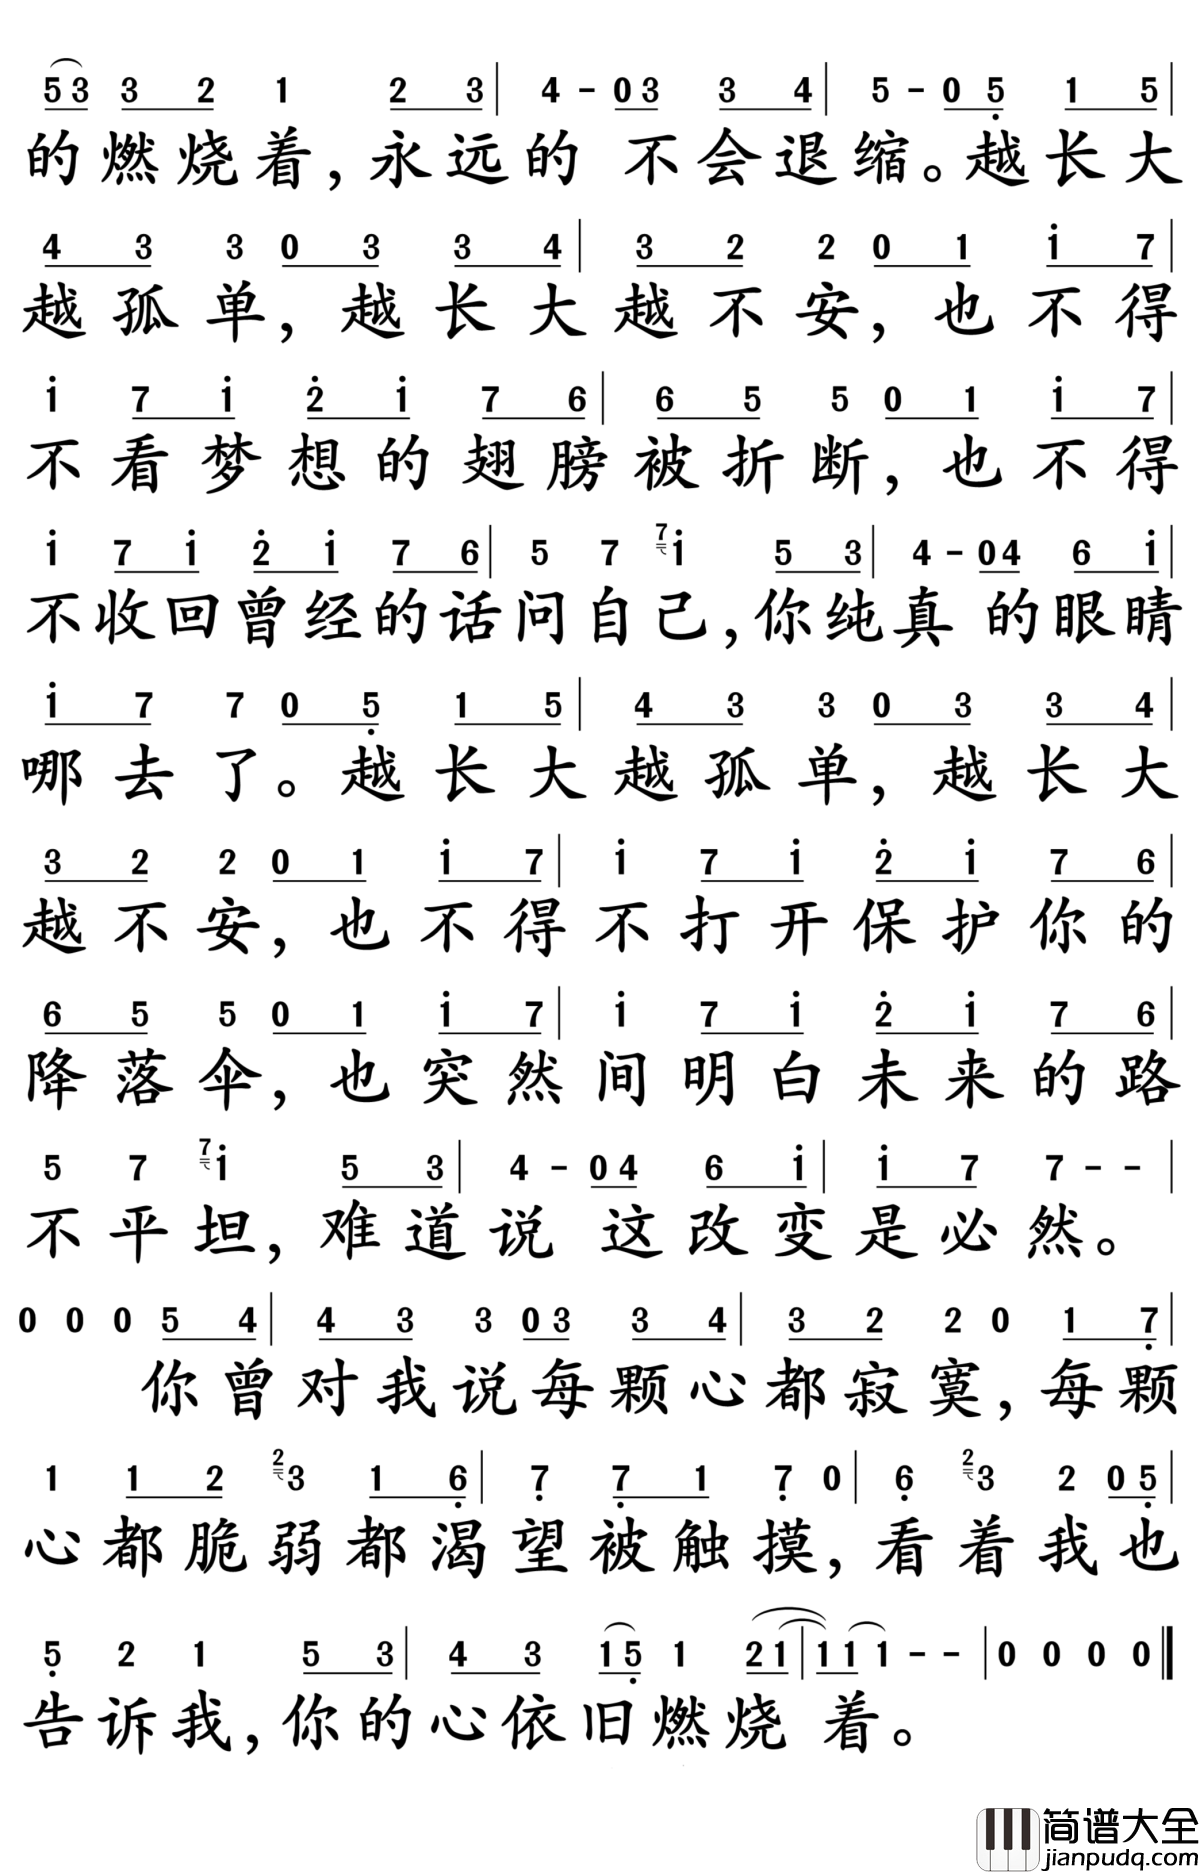 53 3 2 1 2 3 | 4 - 03 3 4 | 5 - 0 5 1 5 |
的燃烧着,永远的 不会退缩。越长大
4 3 3 0 3 3 4 | 3 2 2 0 1 i 7 |
越孤单,越长大越不安,也不得
i 7 i 2 i 7 6 | 6 5 5 0 1 i 7 |
不看梦想的翅膀被折断,也不得
i 7 i 2 i 7 6 | 5 7 7i 5 3 | 4 - 04 6 i |
不收回曾经的话问自己,你纯真 的眼睛
i 7 7 0 5 1 5 | 4 3 3 0 3 3 4 |
哪去了。越长大越孤单,越长大
3 2 2 0 1 i 7 | i 7 i 2 i 7 6 |
越不安,也不得不打开保护你的
6 5 5 0 1 i 7 | i 7 i 2 i 7 6 |
降落伞,也突然间明白未来的路
5 7 7i 5 3 | 4 - 04 6 i | i 7 7 - - |
不平坦,难道说 这改变是必然。
0 0 0 5 4 | 4 3 3 03 3 4 | 3 2 2 0 1 7 |
你曾对我说每颗心都寂寞,每颗
1 1 2 23 1 6 | 7 7 1 7 0 | 6 23 2 05 |
心都脆弱都渴望被触摸,看着我也
5 2 1 5 3 | 4 3 15 1 21 | 11 1 - - | 0 0 0 0 ‖
告诉我,你的心依旧燃烧 着。
简谱大全
jianpudq.com